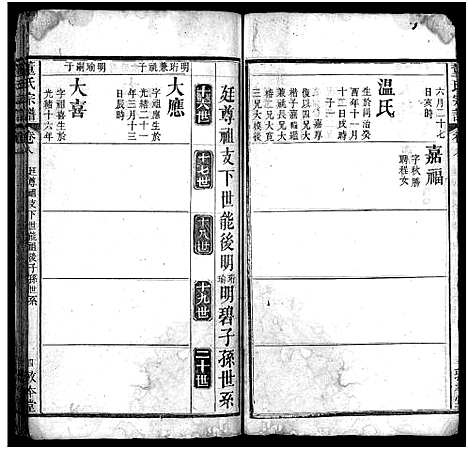 六月二十七
日亥時
嘉福
字秋膳
聘程女
溫氏
生於同治癸
酉年十一月
十二日戌時
子一
復以四兄大
楷子富繼
兼祧長兄大
三兄大寬
三兄大模後
廷尊祖支下世能後明珩瑜明碧子孫世系
十六世
十七世
十八世
十九世
二十世
明珩兼祧子
大應
字祖應生於
光緒二十一
年三月十三
日辰時
明瑜嗣子
大喜
字祖喜生於
光緒十六年
董氏宗譜
卷八
廷尊祖支下世能後子孫世系
四
敦本堂